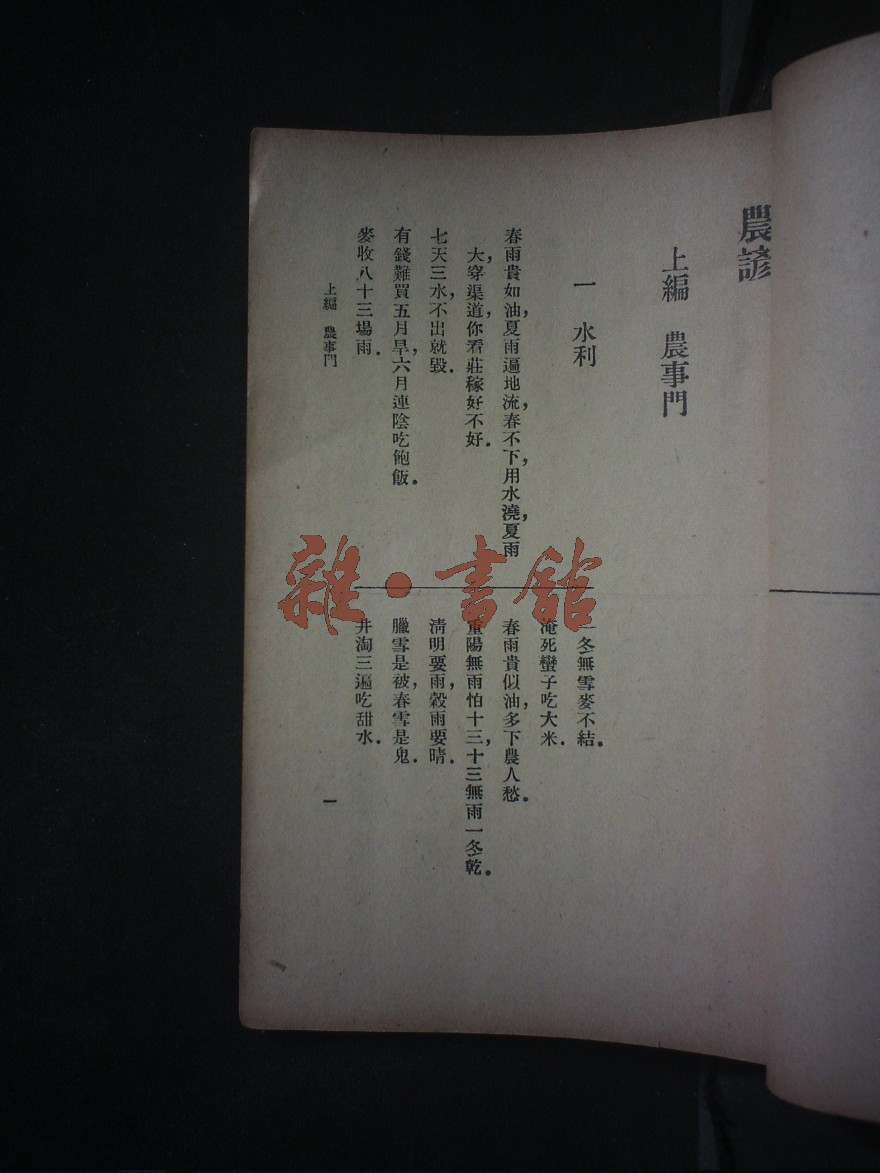 農諺
上編　農事門
一　水利
春雨貴如油，夏雨遍地流，春不下，用水澆，夏雨
大，穿渠道，你看莊稼好不好．
七天三水，不出就毀．
有錢難買五月旱，六月連陰吃飽飯．
麥收八十三場雨．
一冬無雪麥不結．
淹死蠻子吃大米．
春雨貴似油，多下農人愁．
重陽無雨怕十三，十三無雨一冬乾．
淸明要雨，穀雨要晴．
臘雪是被，春雪是鬼．
井淘三遍吃甜水．
上編　農事門
一
雜·書館